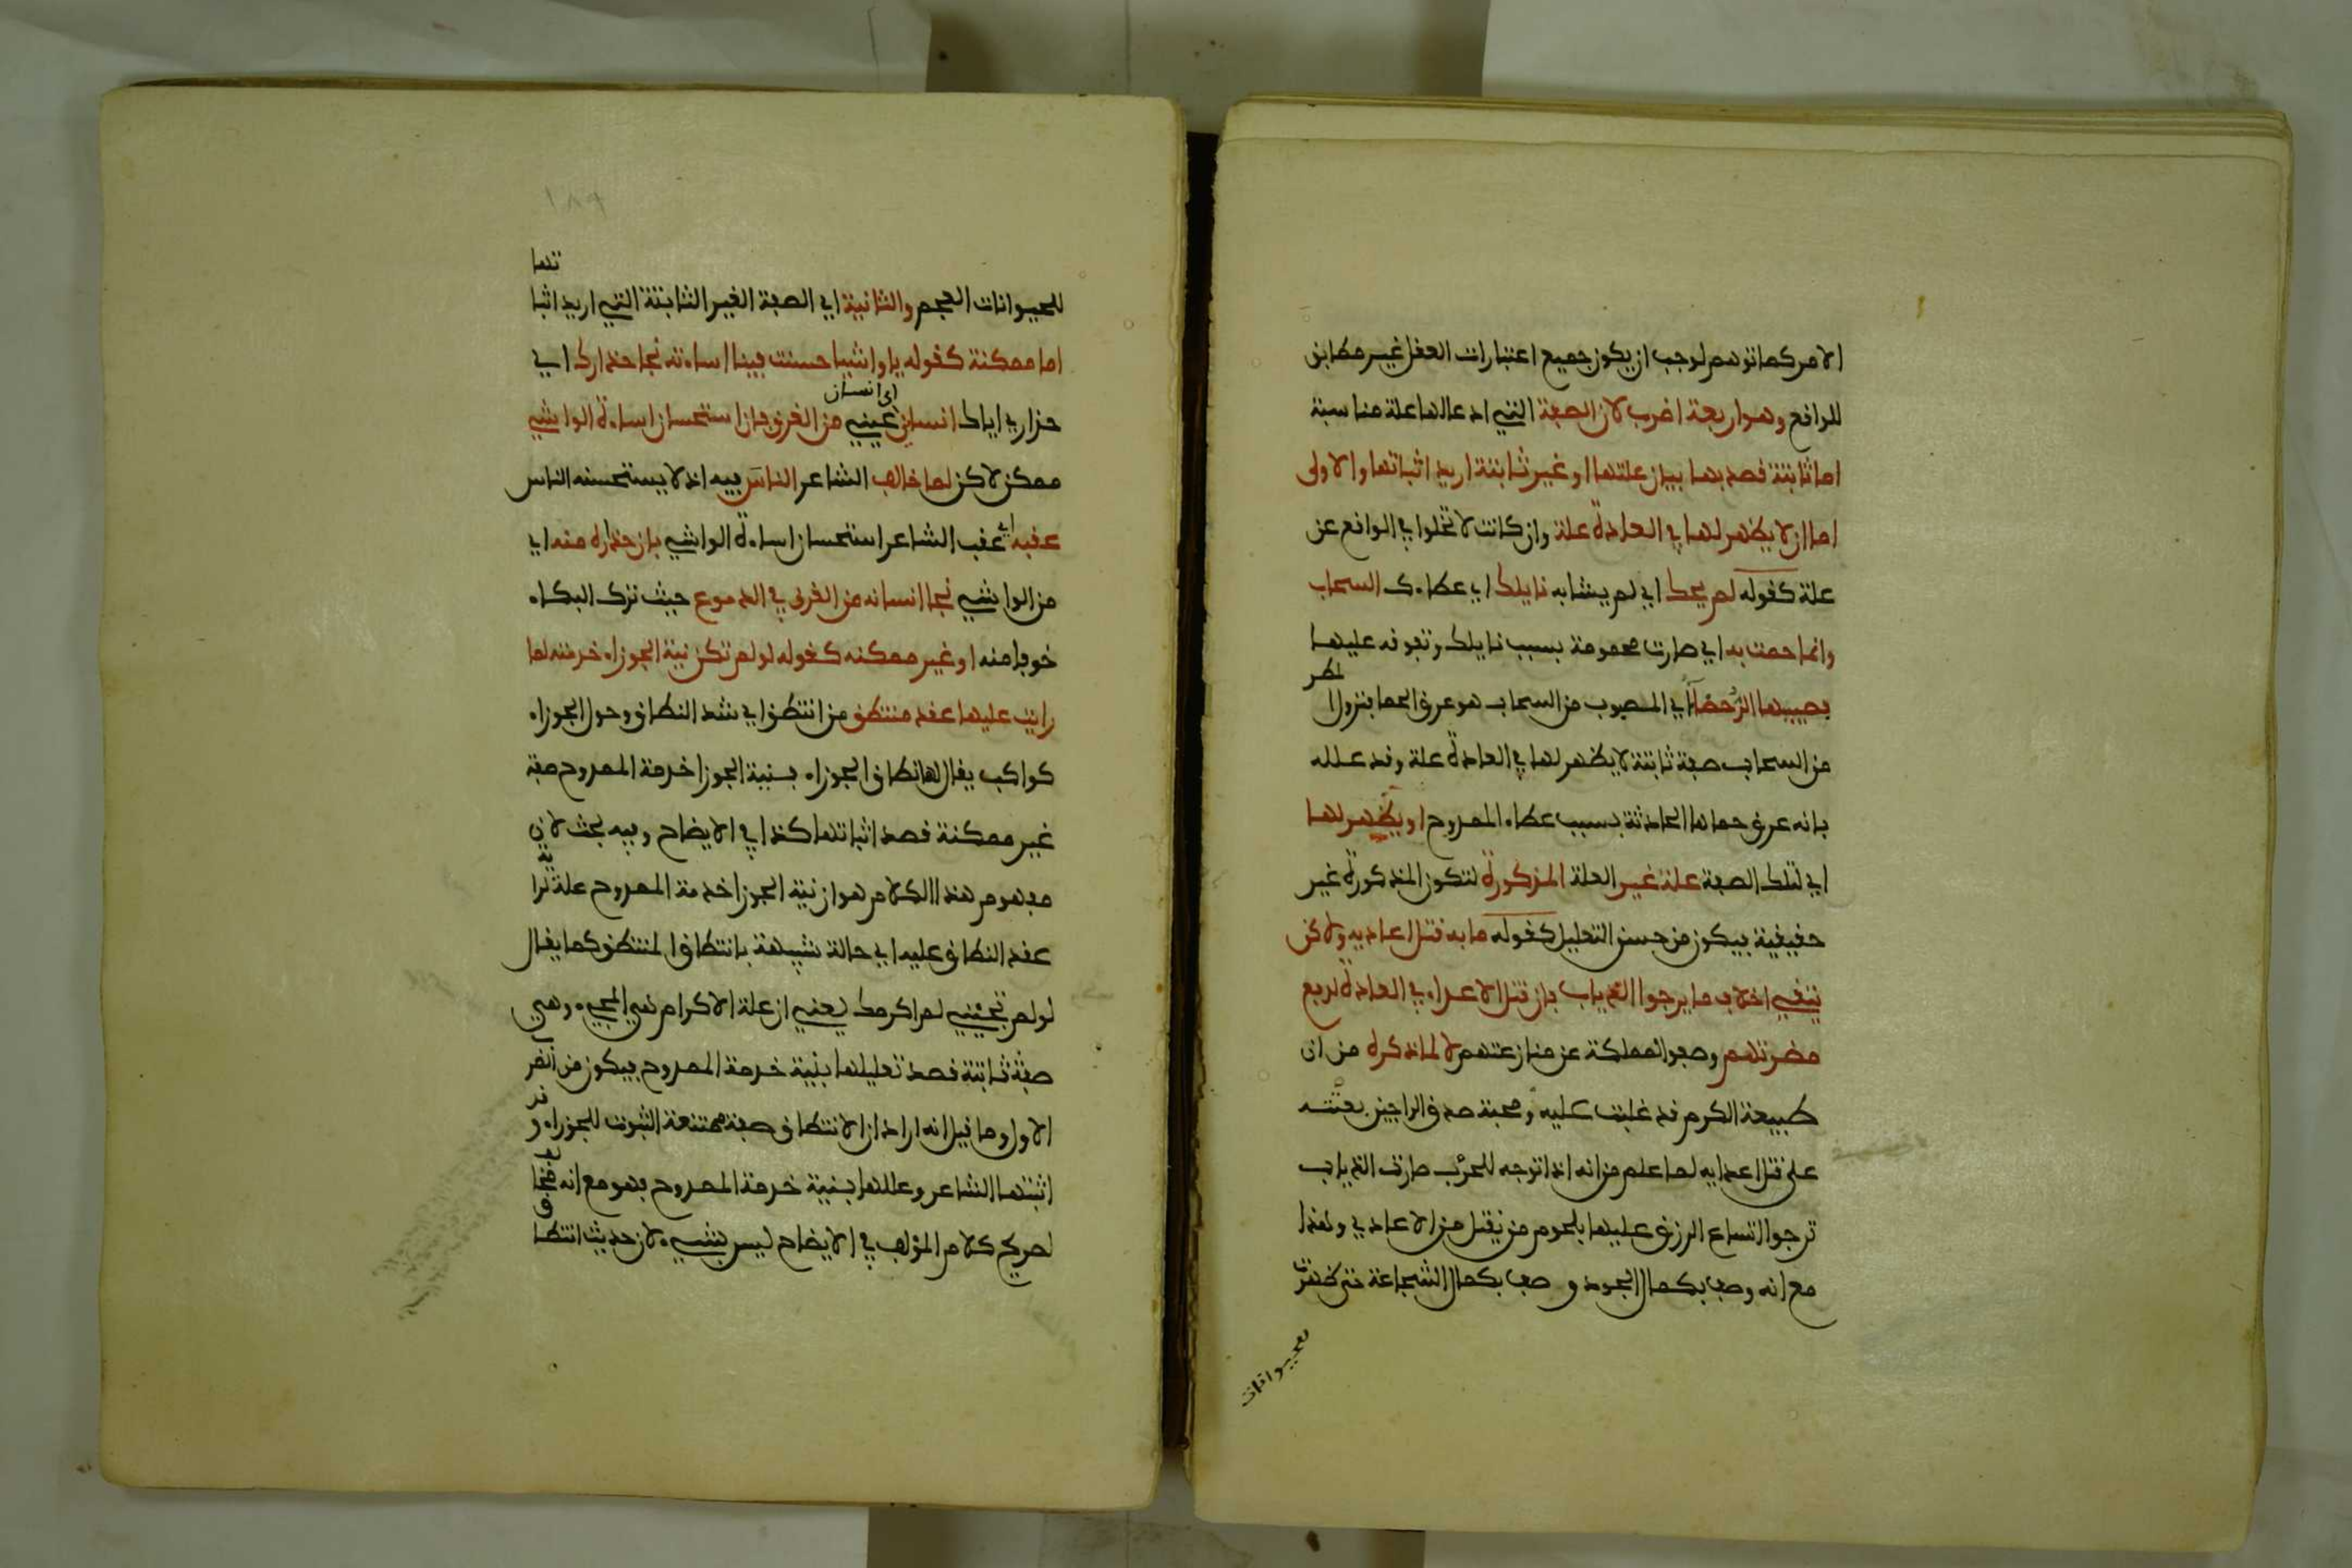 الامر كما توهم لوجب ان يكون جميع اعتبارات العقل غير مطابق
للواقع وهو اربعة اضرب لان الصفة التي ادعا لها علة مناسبة
اما ثابتة قصد بها بيان علتها او غير ثابتة اريد اثباتها والاولى
اما ان لا يظهر لها في العادة علة وان كانت لا تخلوا في الواقع عن
علة كقوله لم يحك اي لم يشابه نايلك اي عطاءك السحاب
وانما حمت به اي صارت محمومة بسبب نايلك وتفوقه عليها
فصبيبها الرُّحضَآءُ اي المصبوب من السحاب هو عرق الحما فنزول ا
لمطر
من السحاب صفة ثابتة لا يظهر لها في العادة علة وقد علله
بانه عرق حماها الحادثة بسبب عطاء الممدوح او يظهر لها
اي لتلك الصفة علة غير العلة المذكورة لتكون المذكورة غير
حقيقية فيكون من حسن التعليل كقوله ما به قتل اعاديه ولاكن
يتقي اخلاف ما يرجوا الذياب فان قتل الاعداء في العادة لدفع
مضرتهم وصفوا لمملكة عن منازعتهم لا لما ذكره من ان
طبيعة الكرم قد غلبت عليه ومحبة صدق الراجين بعثته
على قتل اعدايه لما علم من انه اذا توجه للحرب صارت الذياب
ترجوا اتساع الرزق عليها بلحوم من يقتل من الاعادي ولهذا
مع انه وصف بكمال الجود وصف بكمال الشجاعة حتى ظهرت
للحيوانات
١٨٩
للحيوانات العجم والثانية اي الصفة الغير الثابتة التي اريد اثبا
تها
اما ممكنة كقوله يا واشيا حسنت فينا اساءته نجا حذارك اي
حذاري اياك انساني عيني من الغرق فان استحسان اساءة الواشي
اي انسان
ممكن لاكن لما خالف الشاعر الناس فيه اذ لا يستحسنه الناس
عقبه اي عقب الشاعر استحسان اساءة الواشي بان حذاره منه اي
من الواشي نجا انسانه من الغرق في الدموع حيث ترك البكاء
خوفا منه او غير ممكنه كقوله لو لم تكن نية الجوزاء خدمته لما
رايت عليها عقد منتطق من انتطق اي شد النطاق وحول الجوزاء
كواكب يقال لها نطاق الجوزاء فنية الجوزا خدمة الممدوح صفة
غير ممكنة قصد اثباتها كذا في الايضاح وفيه بحث لان
مفهوم هذا الكلام هو ان نية الجوزا خدمة الممدوح علة لرا
ية
عقد النطاق عليه اي حالة شبيهة بانتطاق المنتطق كما يقال
لو لم تجئني لم اكرمك يعني ان علة الاكرام هي المجيء وهي
صفة ثابتة قصد تعليلها بنية خدمة الممدوح فيكون من الضر
الاول وما قيل انه اراد ان الانتطاق صفة ممتنعة الثبوت للجوزاء و
قد
اثبتها الشاعر وعللها بنية خدمة الممدوح فهو مع انه مخا
لف
لصريح كلام المؤلف في الايضاح ليس بشيء لان حديث انتطا
ق